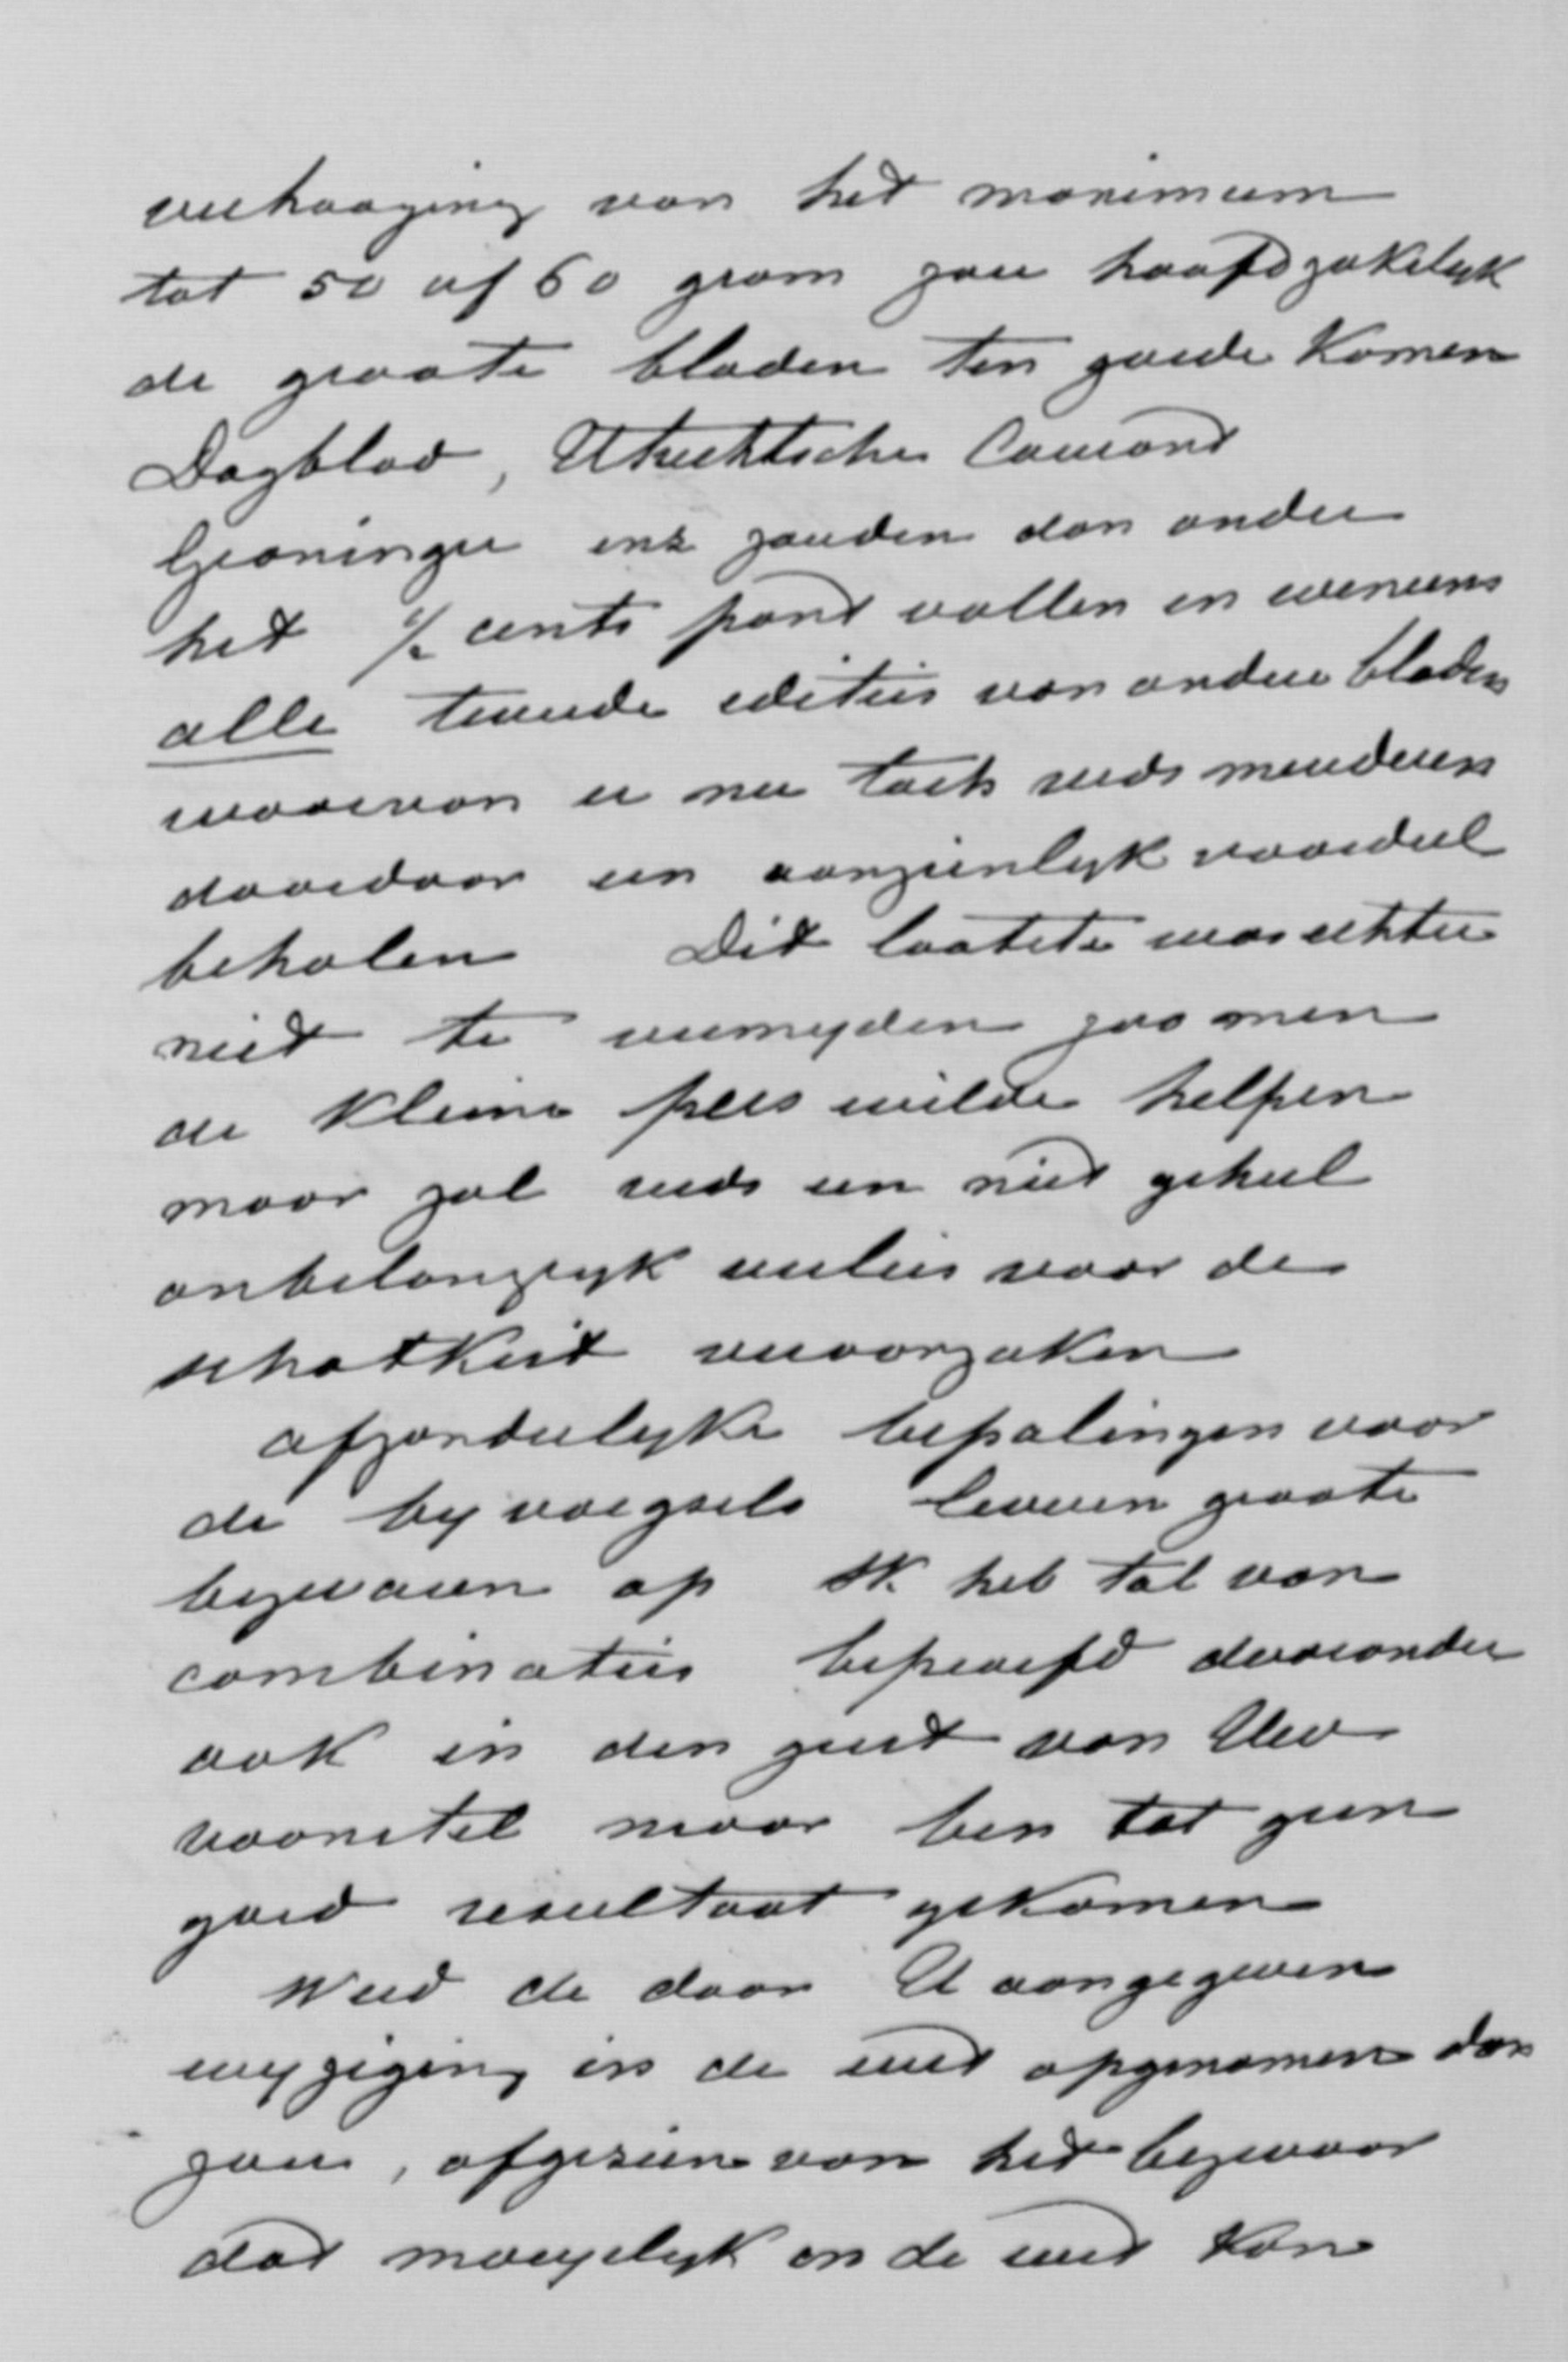 verhooging van het maximum
tot 50 of 60 gram zou hoofdzakelyk
de groote bladen ten goede komen
Dagblad, Utrechtsche Courant
Groninger enz zouden dan onder
het ½ cents port vallen en eveneens
alle tweede edities van andere bladen
waarvan er nu toch reeds meerderen
daardoor een aanzienlyk voordeel
behalen Dit laatste was echter
niet te vermyden zoo men
de kleine pers wilde helpen
maar zal reeds een niet geheel
onbelangryk verlies voor de
schatkist veroorzaken
afzonderlyke bepalingen voor
de byvoegsels leveren groote
bezwaren op Ik heb tal van
combinaties beproefd daaronder
ook in den geest van Uw
voorstel maar ben tot geen
goed resultaat gekomen
Werd de door U aangegeven
wyziging in de wet opgenomen dan
zou, afgezien van het bezwaar
dat moeyelyk in de wet kan